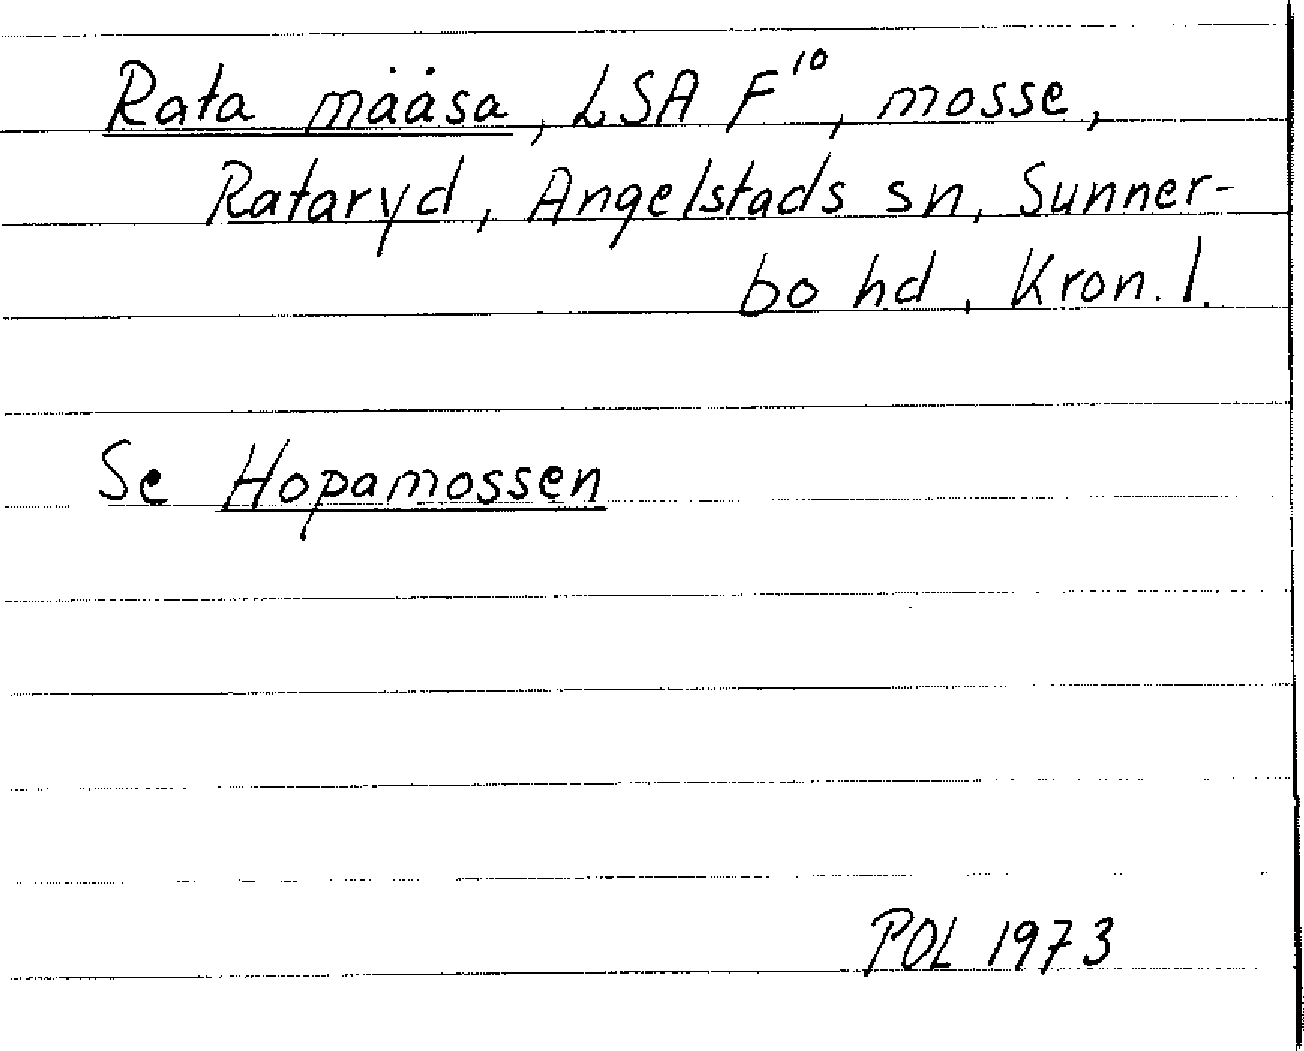 Rata mȧȧsa, LSA F¹⁰, mosse,
Rataryd, Angelstads sn, Sunner-
bo hd, Kron. l.
Se Hopamossen
POL 1973